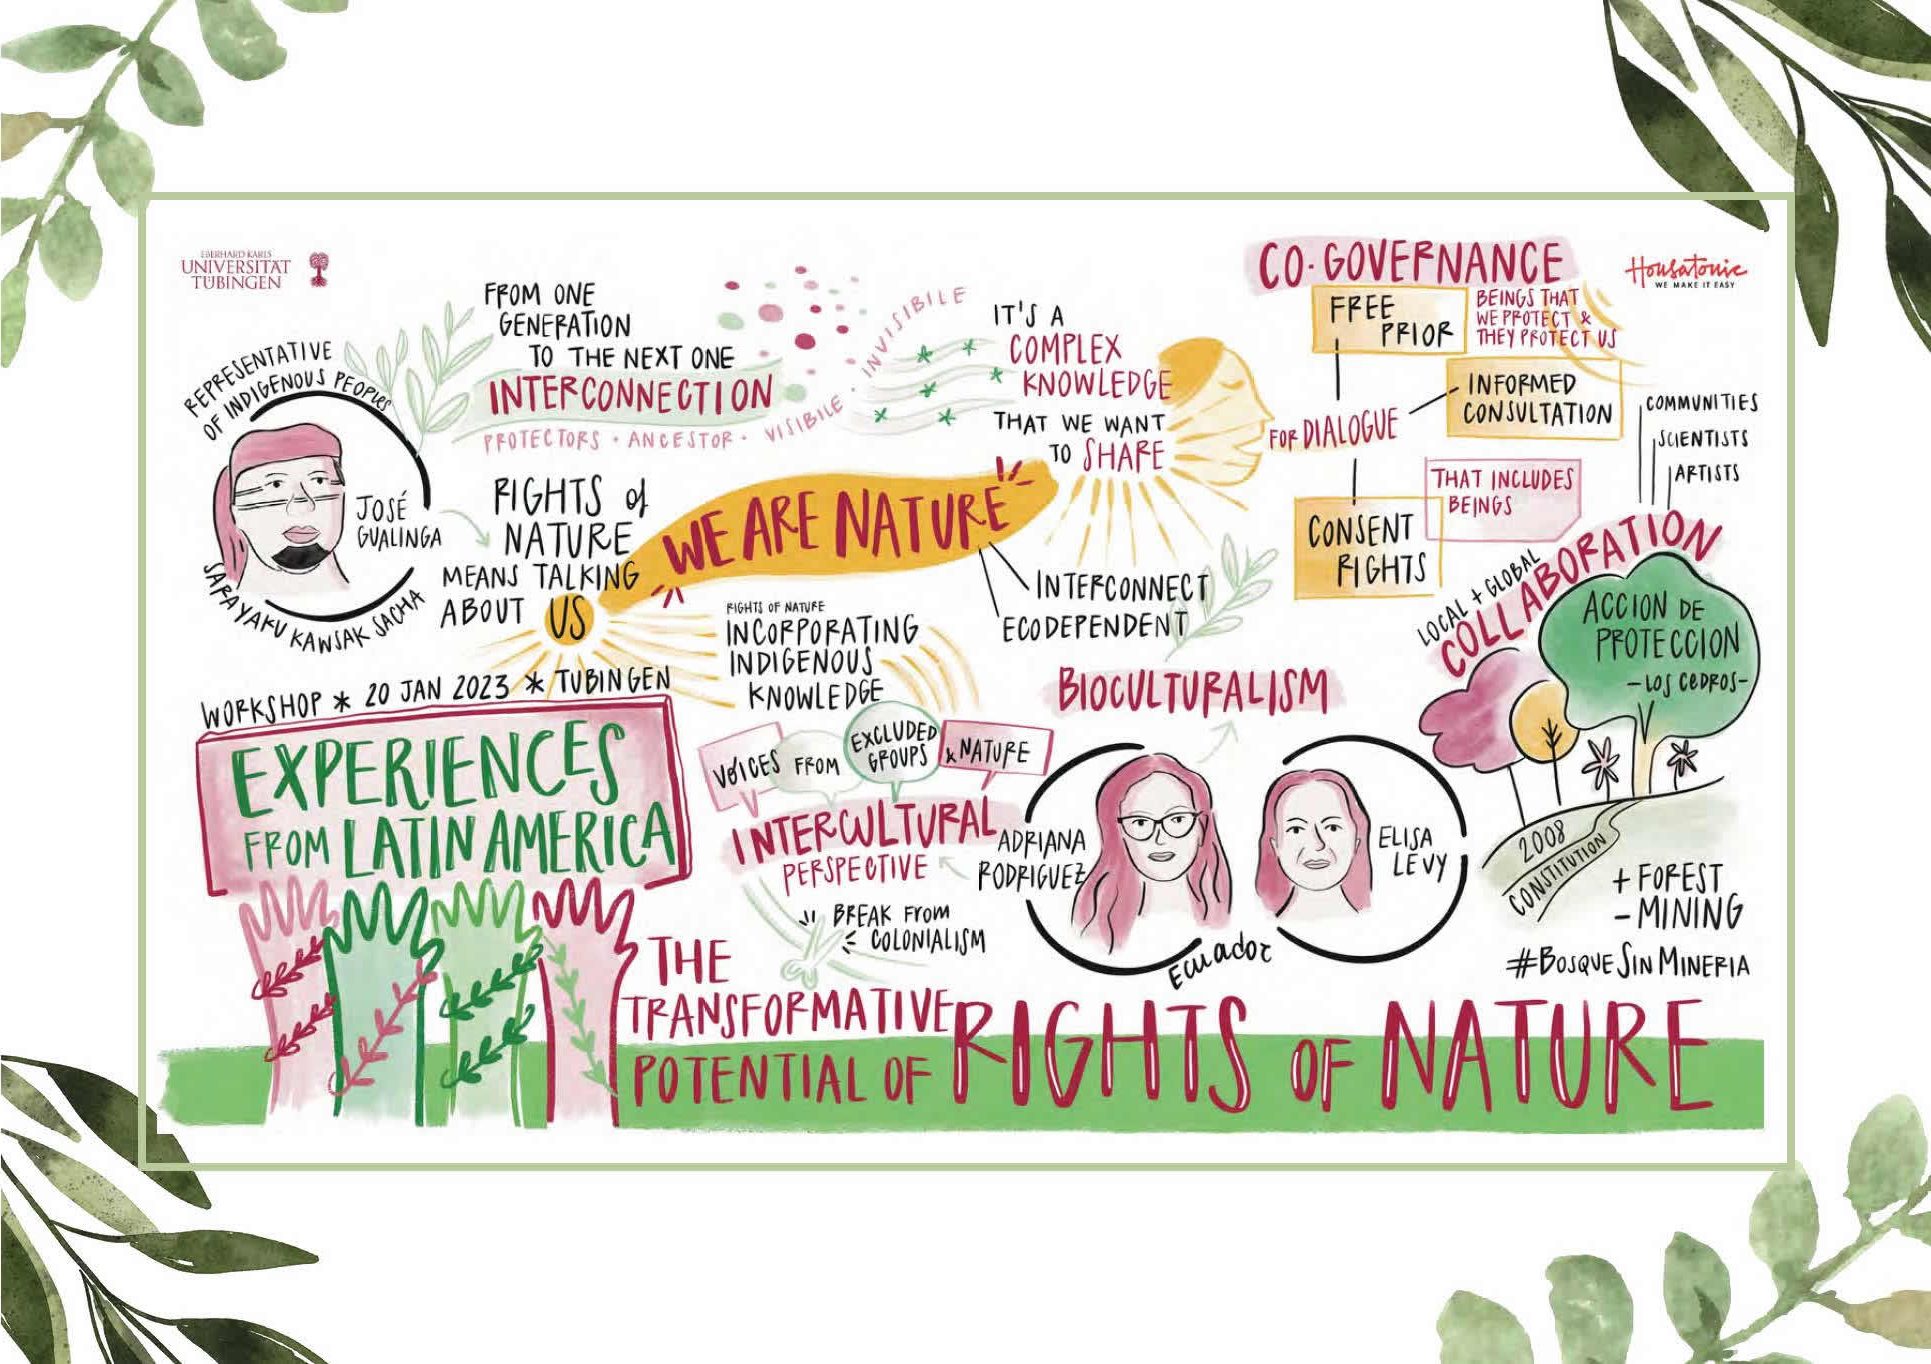 EBERHARD KARLS
UNIVERSITÄT
TÜBINGEN
REPRESENTATIVE
OF INDIGENOUS PEOPLES
JOSÉ
GUALINGA
SARAYAKU KAWSAK SACHA
FROM ONE
GENERATION
TO THE NEXT ONE
INTERCONNECTION
PROTECTORS • ANCESTOR • VISIBILE • INVISIBILE
RIGHTS of
NATURE
MEANS TALKING
ABOUT US
WE ARE NATURE
INTERCONNECT
ECODEPENDENT
IT'S A
COMPLEX
KNOWLEDGE
THAT WE WANT
TO SHARE
CO-GOVERNANCE
FREE
PRIOR
BEINGS THAT
WE PROTECT &
THEY PROTECT US
INFORMED
CONSULTATION
FOR DIALOGUE
THAT INCLUDES
BEINGS
CONSENT
RIGHTS
Housatonic
WE MAKE IT EASY
COMMUNITIES
SCIENTISTS
ARTISTS
LOCAL + GLOBAL
COLLABORATION
ACCION DE
PROTECCION
- LOS CEDROS -
2008
CONSTITUTION
+ FOREST
- MINING
#BOSQUE SIN MINERIA
RIGHTS OF NATURE
INCORPORATING
INDIGENOUS
KNOWLEDGE
VOICES FROM EXCLUDED
GROUPS & NATURE
INTERCULTURAL
PERSPECTIVE
BREAK FROM
COLONIALISM
BIOCULTURALISM
ADRIANA
RODRIGUEZ
ELISA
LEVY
Ecuador
WORKSHOP * 20 JAN 2023 * TUBINGEN
EXPERIENCES
FROM LATIN AMERICA
THE
TRANSFORMATIVE
POTENTIAL OF RIGHTS OF NATURE